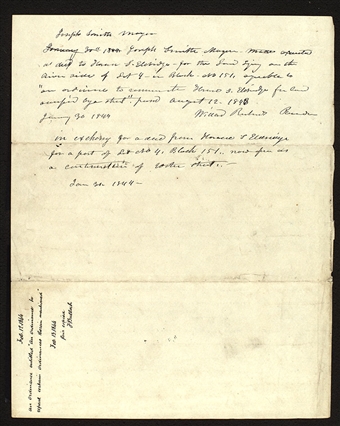 Joseph Smith Mayor
January 30th 1844 Joseph Smith Mayor makes
a deed to Horace S. Eldridge for the land lying on the
River side of Lot 4 in Block No 151, agreeable to
"an ordinance to remunerate Horace S. Eldridge for land
street" passed August 12. 1843
January 30 1844 Willard Richards Recorder
in exchange for a deed from Horace S Eldridge
for a part of Lot No 4, Block 151. now open as
a continuation of Street.
Jan 30. 1844-
Feb. 17. 1844
An Ordinance entitled "An Ordinance to
repeal certain Ordinances therein mentioned"
Feb 17 1844